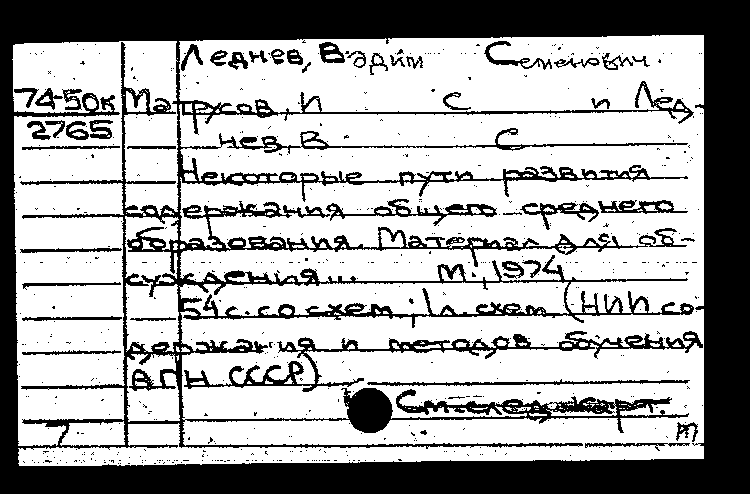 Леднев, Вадим Семенович.
74-50к Матрусов, И С и Лед-
2765 нев, В С
Некоторые пути развития
содержания общего среднего
образования. Материал для об-
суждения... М., 1974.
54 с. со схем; 1 л. схем (НИИ со-
держания и методов обучения
АПН СССР)
См. след. карт.
7 т